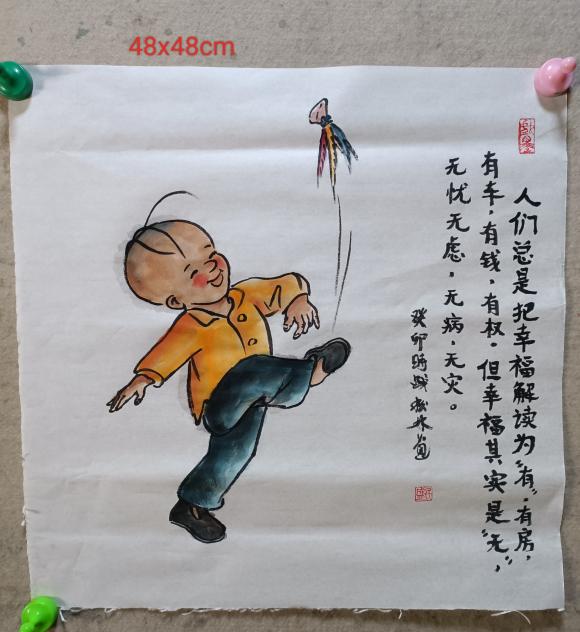 48x48cm
人们总是把幸福解读为“有”，有房，
有车，有钱，有权，但幸福其实是“无”，
无忧无虑，无病，无灾。
癸卯